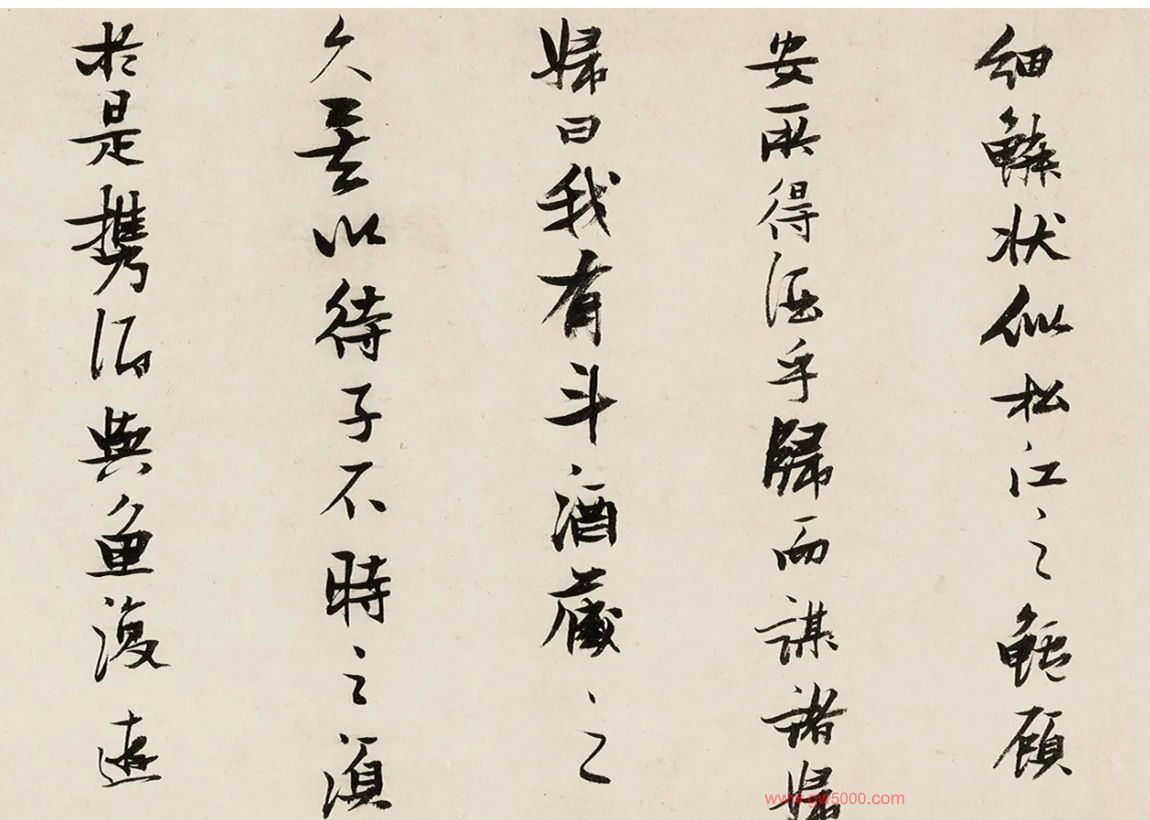 細鱗状似松江之鱸顧
安所得酒乎歸而謀諸婦
婦曰我有斗酒藏之
久矣以待子不時之須
於是攜酒與魚復遊
www.gw5000.com